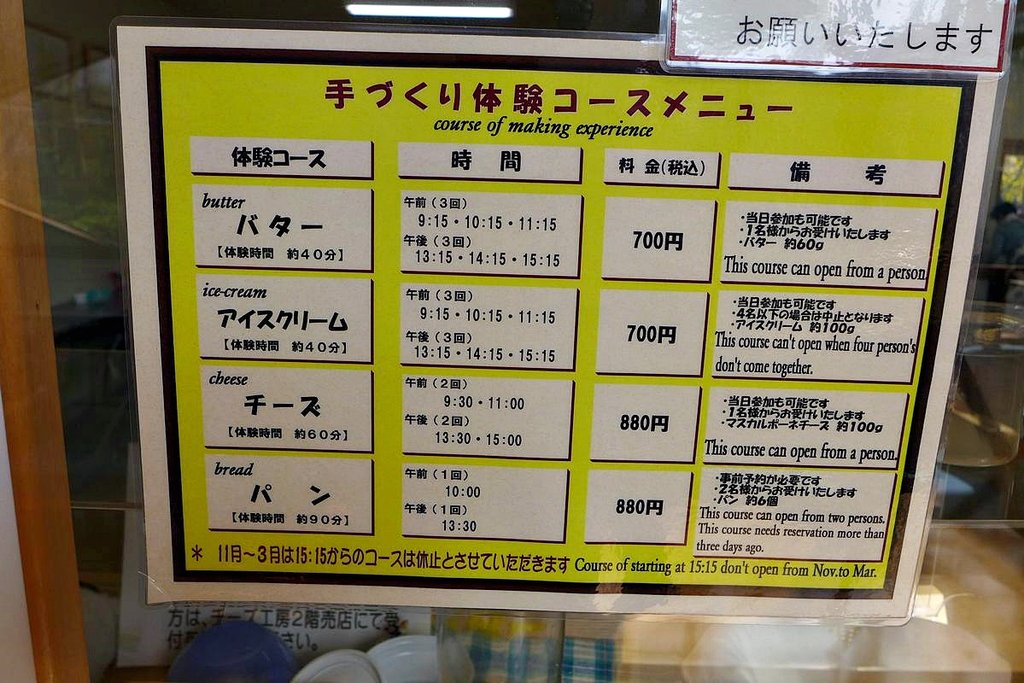 お願いいたします
手づくり体験コースメニュー
course of making experience
体験コース 時間 料金(税込) 備考
butter
バター
【体験時間 約40分】
午前(3回)
9:15・10:15・11:15
午後(3回)
13:15・14:15・15:15
700円
・当日参加も可能です
・1名様からお受けいたします
・バター 約60g
This course can open from a person.
ice-cream
アイスクリーム
【体験時間 約40分】
午前(3回)
9:15・10:15・11:15
午後(3回)
13:15・14:15・15:15
700円
・当日参加も可能です
・4名以下の場合は中止となります
・アイスクリーム 約100g
This course can't open when four person's
don't come together.
cheese
チーズ
【体験時間 約60分】
午前(2回)
9:30・11:00
午後(2回)
13:30・15:00
880円
・当日参加も可能です
・1名様からお受けいたします
・マスカルポーネチーズ 約100g
This course can open from a person.
bread
パン
【体験時間 約90分】
午前(1回)
10:00
午後(1回)
13:30
880円
・事前予約が必要です
・2名様からお受けいたします
・パン 約6個
This course can open from two persons.
This course needs reservation more than
three days ago.
* 11月～3月は15:15からのコースは休止とさせていただきます Course of starting at 15:15 don't open from Nov.to Mar.
方は、チーズ工房2階売店にて受
付
さい。